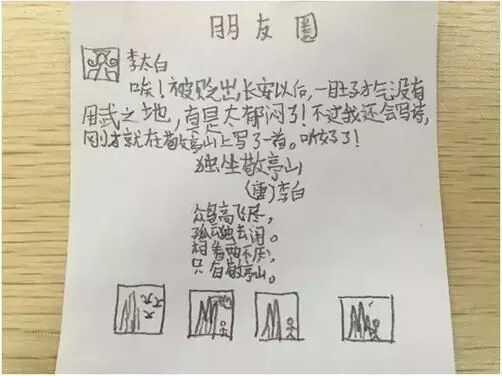 朋友圈
李太白
唉!被贬出长安以后,一肚子才气没有
用武之地,真是太郁闷了!不过我还会写诗,
刚才就在敬亭山上写了一首。听好了!
独坐敬亭山
(唐)李白
众鸟高飞尽,
孤云独去闲。
相看两不厌,
只有敬亭山。